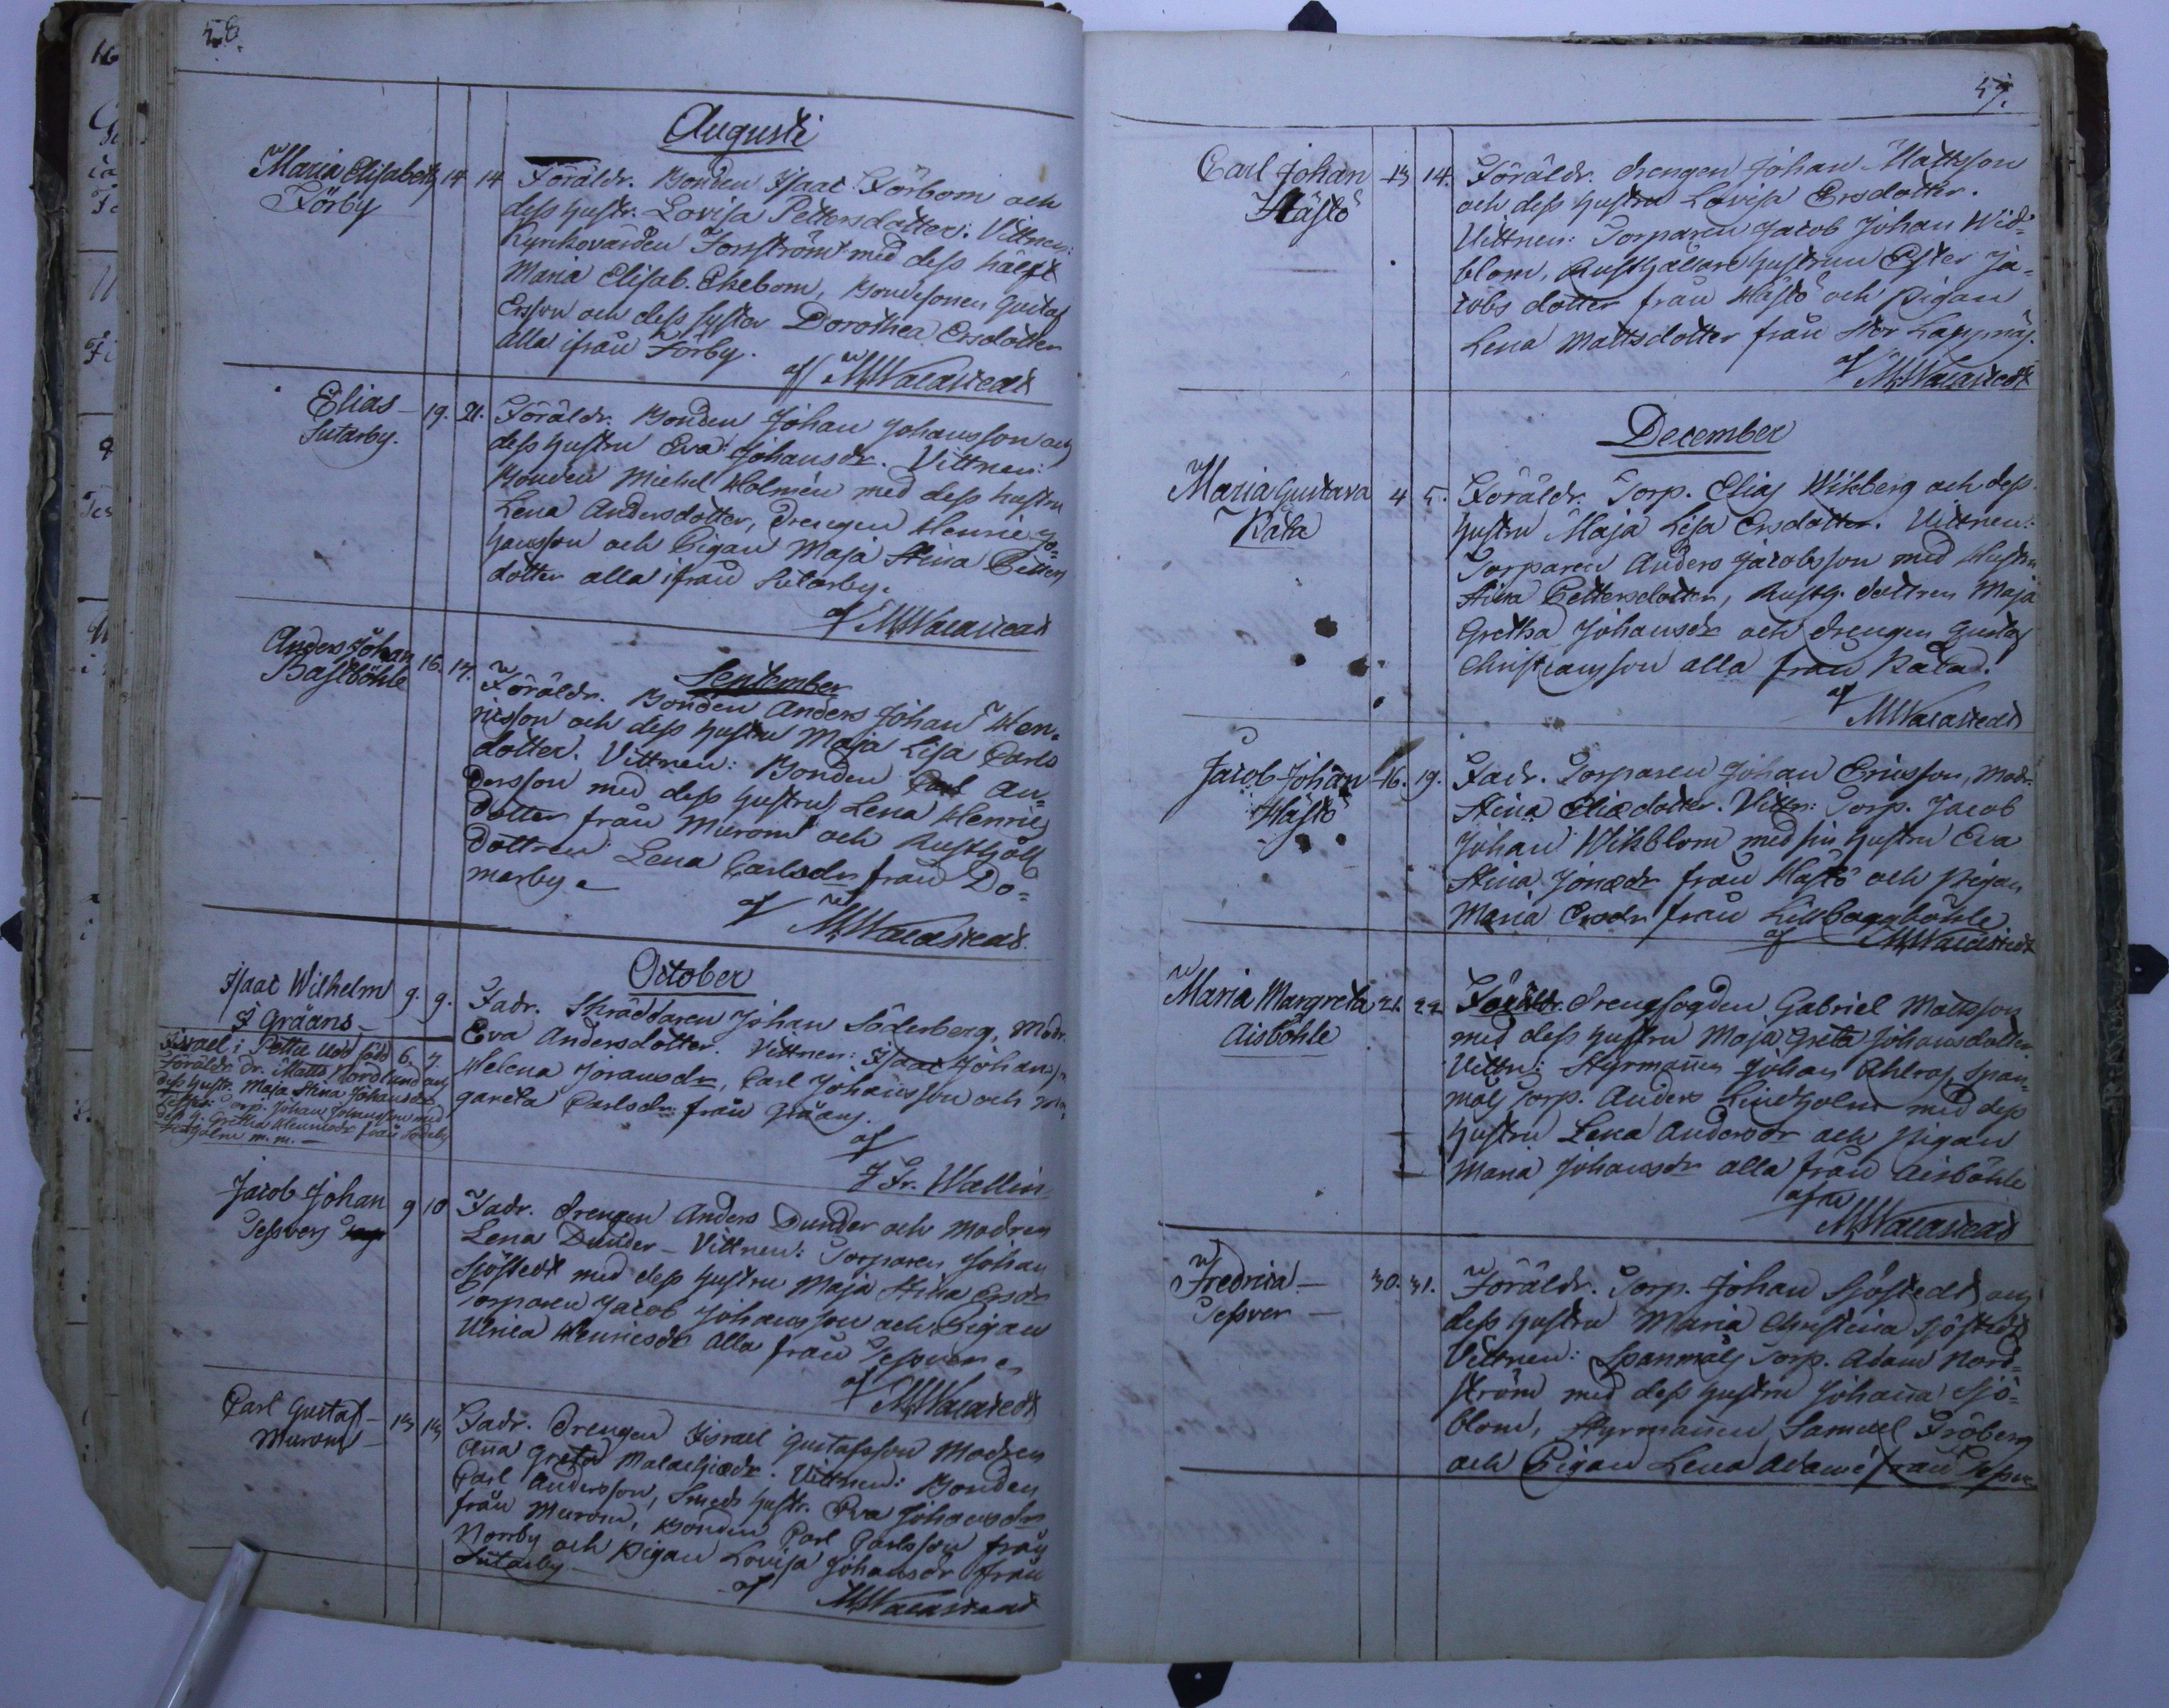 58.
Augusti
Maria Elisabeth 14 14 Föräldr. Bonden Isaac Förbom och
Förby
dess hustr. Lovisa Pettersdotter. Vittnen:
Kyrkovärden Forsström med dess hälft
Maria Elisab. Ekebom, Bondesonen Gustaf
Ersson och dess syster Dorothea Ersdotter
alla ifrån Förby.
af MWacastedt
Elias 19. 21. Föräldr. Bonden Johan Johansson och
Sutarby.
dess hustru Eva Johansdr. Vittnen:
Bonden Michel Holmén med dess hustru
Lena Andersdotter, drengen Henric Jo-
hansson och Pigan Maja Stina Petters
dotter alla ifrån Sutarby.
af MWacastedt
September
Anders Johan 16. 17. Föräldr. Bonden Anders Johan Hen-
Bastböhle
ricsson och dess hustru Maja Lisa Carls
dotter. Vittnen: Bonden Carl An-
dersson med dess hustru Lena Henrics
dotter från Murom och Rusthåll
dottren Lena Carlsdr från Do-
marby
af MWacastedt
October
Isaac Wilhelm 9. 9. Fadr. Skräddaren Johan Söderberg, Modr.
Gråans
Eva Andersdotter. Vittnen: Isaac Johans
Helena Joransdr, Carl Johansson och Mar
gareta Carlsdr från Gråans.
af
J Fr. Wallin
Israel i Pettu Udd född 6. 7.
Föräldr. dr. Matts Nordlund och
dess hustr. Maja Stina Johansdr
Torp. Johan Johansson med
dess h. Gretha Henricsdr från Söderby
holm m. m.
Jacob Johan 9 10 Fadr. drengen Anders Dunder och modren
Tessvers
Lena Dunder – Vittnen: Torparen Johan
Sjöstedt med dess hustru Maja Stina Ersdr
Torparen Jacob Johansson och Pigan
Ulrica Henricsdr alla från Tessver
af MWacastedt
Carl Gustaf 13 13 Fadr. drengen Israel Gustafsson Modren
Murom
Ana Greta Malachiædr. Vittnen: Bonden
Carl Andersson, Smeds hustr. Eva Johansdr
från Murom, Bonden Carl Carlsson från
Norrby och Pigan Lovisa Johansdr från
Sutarby
af MWacastedt
59.
Carl Johan 13 14. Föräldr. drengen Johan Mattsson
Hästö
och dess hustru Lovisa Ersdotter.
Vittnen: Torparen Jacob Johan Wid-
blom, Rusthållare hustrun Ester Ja-
cobs dotter från Hästö och Pigan
Lena Mattsdotter från Stor Lappnäs.
af MWacastedt
December
Maria Gustava 4 5. Föräldr. Torp. Elias Wikberg och dess
Råta
hustru Maja Lisa Ersdotter. Vittnen:
Torparen Anders Jacobsson med Hustru
Stina Pettersdotter, Rusth. dottren Maja
Gretha Johansdr och drengen Gustaf
Christiansson alla från Råta.
af MWacastedt
Jacob Johan 16. 19. Fadr. Torparen Johan Ericsson, Modr.
Hästö
Stina Eliædotter. Vittn: Torp. Jacob
Johan Wikblom med sin hustru Eva
Stina Jonædr från Hästö och pigan
Maria Ersdr från Lillbaggböhle
af MWacastedt
Maria Margreta 21. 22 Föräldr. Drengfogden Gabriel Mattsson
Aisböhle
med dess hustru Maja Greta Johansdotter.
Vittn: Styrmannen Johan Ahlros, Span-
måls Torp. Anders Lindholm med dess
hustru Lena Andersdr och pigan
Maria Johansdr alla från Aisböhle
af MWacastedt
Fredrica 30. 31. Föräldr. Torp. Johan Sjöstedt och
Tessver
dess hustru Maria Christina Sjöstedt
Vittnen: Spanmåls Torp. Adam Nord-
ström med dess hustru Johanna Sjö-
blom, Styrmannen Samuel Fröberg
och Pigan Lena Adamsd från Tessver